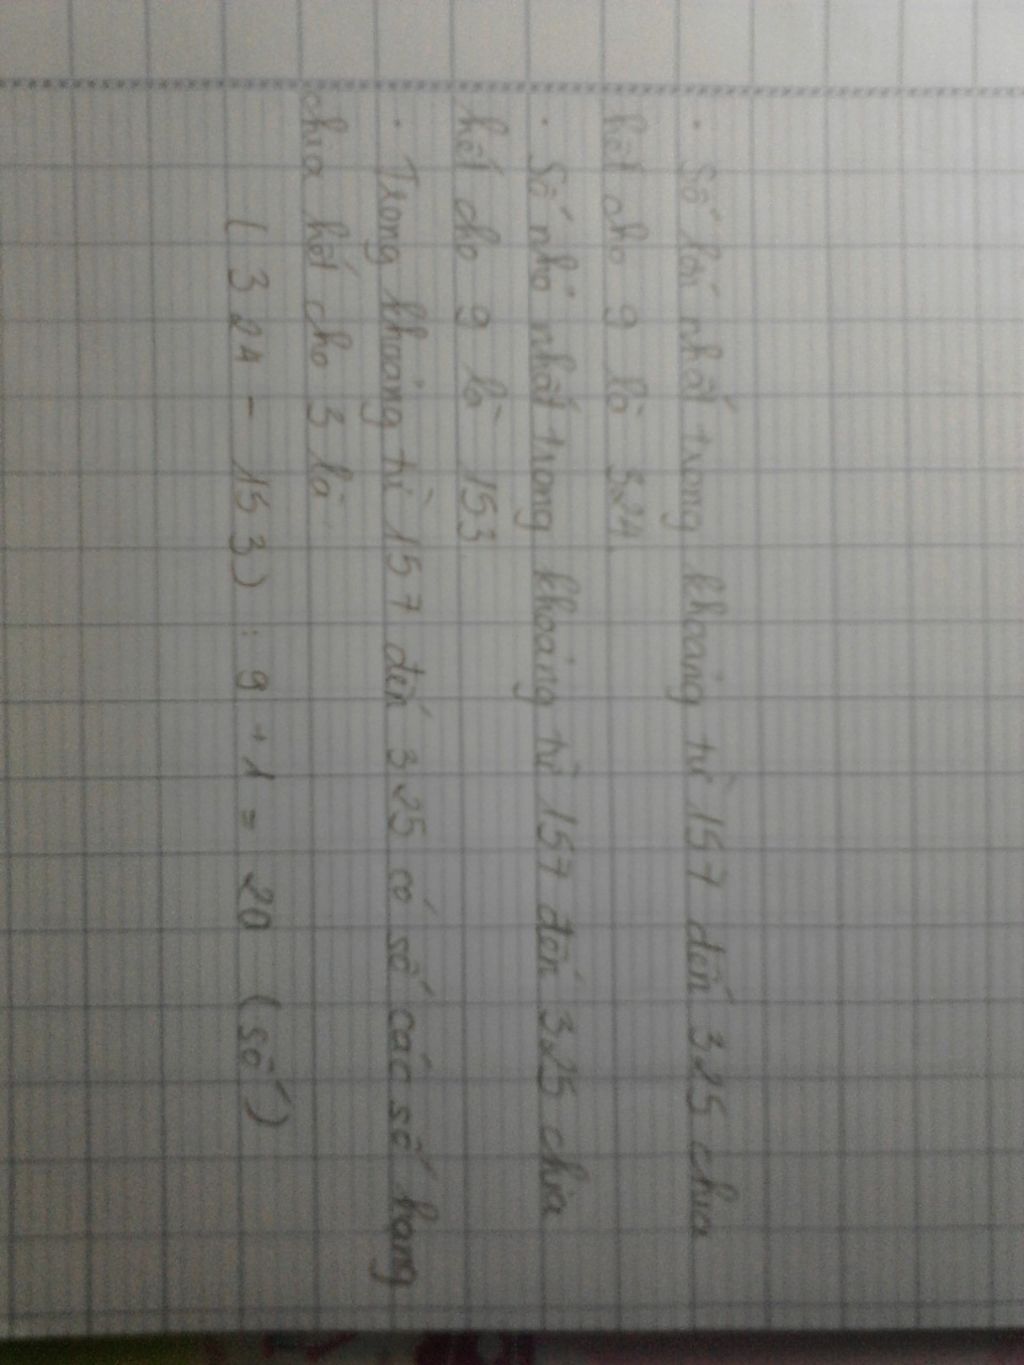 . Số lớn nhất trong khoảng từ 157 đến 325 chia
hết cho 9 là 324.
. Số nhỏ nhất trong khoảng từ 157 đến 325 chia
hết cho 9 là 153.
. Trong khoảng từ 157 đến 325 có số các số hạng
chia hết cho 3 là
( 324 - 153 ) : 9 + 1 = 20 ( số )